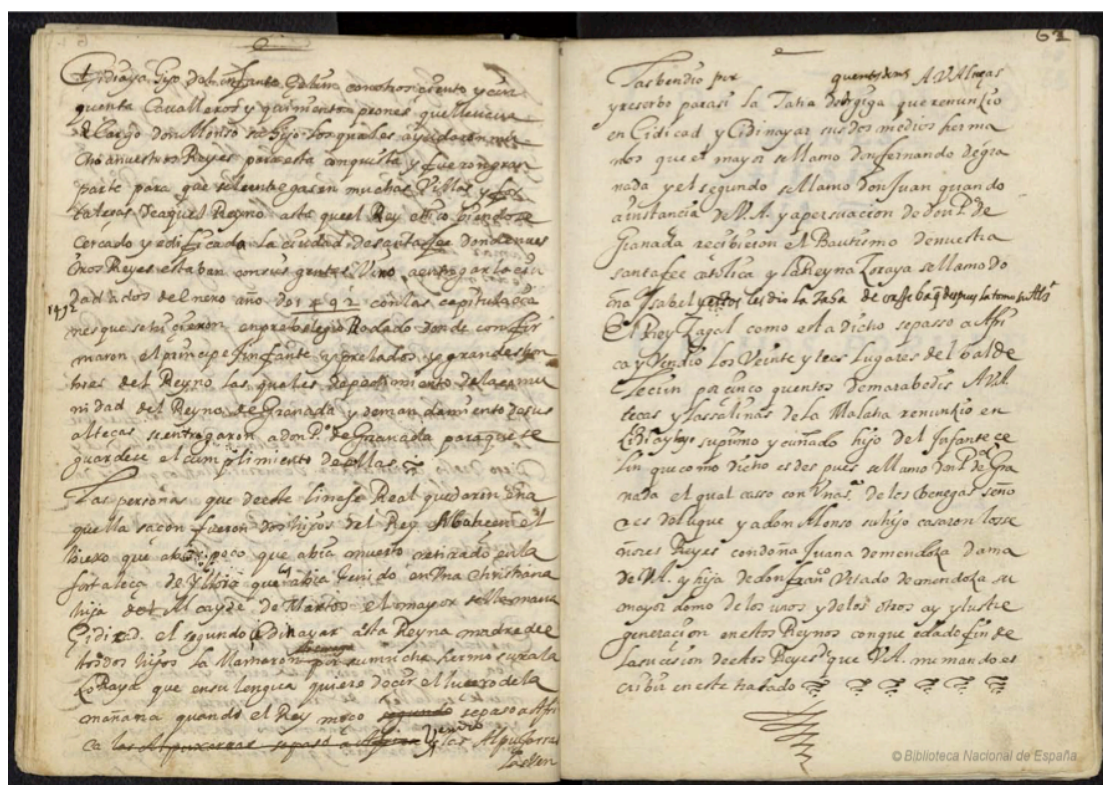 Cidiaya hijo del infante Çelim con otros çiento y cin
quenta Cavalleros y quinientos peones que llevava
a Cargo don Alonso su hijo los quales ayudaron mu
cho a nuestros Reyes para esta conquista y fueron gran
parte para que se le entregasen muchas Villas y for
talezas de aquel Reyno asta que el Rey chico viendose
Cercado y edificada la ciudad de santa fee donde nues
tros Reyes estaban con sus gentes Vino a entregar la ciu
dad a dos de henero año dos 492 con las capitulacio
1492
nes que se hiçieron en prebilegio Rodado donde confir
maron el principe Jinfante y prelados y grandes hon
bres del Reyno las quales de pedimiento de la comu
nidad del Reyno de Granada y de mandamiento de sus
alteças se entregaron a don Pº de Granada para que se
guardese el cumplimiento de ellas
Las personas que deeste linaje Real quedaron en a
quella saçon fueron dos hijos del Rey Albohacen el
biexo que abia poco que abia muerto retirado en la
fortaleça de que abia tenido en Vna christiana
hija del Alcayde de Martos el mayor se llamava
Çidi çad. el segundo Çidinayar a esta Reyna madre de e
stos dos hijos la llamaron por su mucha hermosura la
Zoraya que en su lengua quiere decir el lucero de la
mañana quando el Rey moço segundo se paso a Afri
ca las Alpuxarras se pasó a Africa Vendio las Alpujarras
Las Ven
61
Las bendio por quentos demrs A VAlteças
y reserbo para si La Taha de orgiga que renunçio
en Cidi çad y Cidinayar sus dos medios herma
nos que el mayor se llamo don fernando de gra
nada y el segundo se llamo Don Juan quando
a instancia de V. A. y a persuacion de don Pº de
Granada recibieron el Bautismo de nuestra
santa fee catolica y la Reyna Zoraya se llamo do
ña Isabel y estos les dio la taha de que despues la tomo su Alª
El Rey Zagal como esta dicho se passo a Afri
ca y Vendio los Veinte y tres lugares del bal de
Lecrin por cinco quentos de marabedis A V. Al
teças y las salinas de la Malaha renunçio en
Cidiayaya su primo y cuñado hijo del Jnfante çe
lin que como dicho es despues se llamo don Pº de Gra
nada el qual casso con Vna sª de los Benegas seño
res de luque y a don Alonso su hijo casaron los se
ñores Reyes con doña Juana de mendoza Dama
de V.A. y hija de don franº Vrtado de mendoza su
mayor domo de los unos y de los otros ay ylustre
generaçion en estos Reynos con que e dado fin de
La sucesion de estos Reyes que V.A. me mando es
cribir en este tratado
© Biblioteca Nacional de España